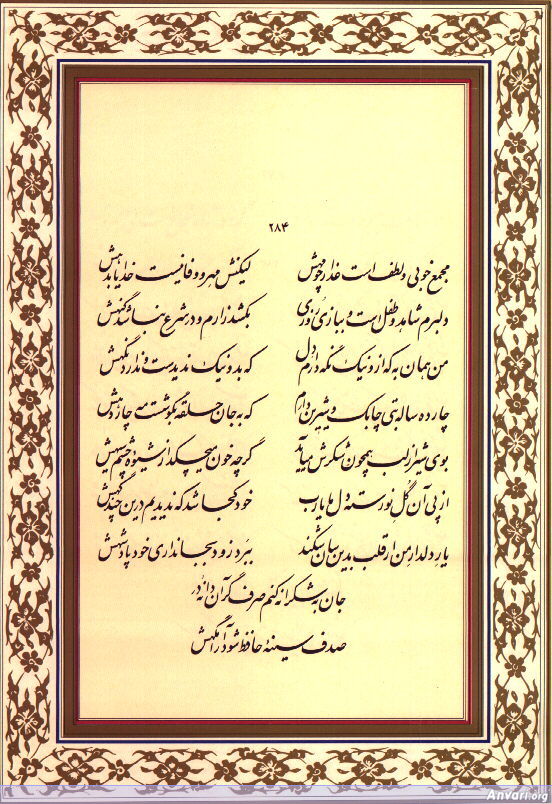 ۲۸۴
مجمع خوبی و لطف است عذار چو مهش لیکنش مهر و وفا نیست خدایا بدهش
دلبرم شاهد و طفل است و ببازی روزی بکشد زارم و در شرع نباشد گنهش
من همان به که از و نیک نگه دارم دل که بد و نیک ندیدست و ندارد نگهش
چارده ساله بتی چابک و شیرین دارم که به جان حلقه بگوشست مه چاردهش
بوی شیر از لب همچون شکرش میآید گرچه خون میچکد از شیوهٔ چشم سیهش
از پی آن گل نورسته دل ما یارب خود کجا شد که ندیدیم درین چند گهش
یار دلدار من ار قلب بدین سان شکند ببرد زود بجانداری خود پادشهش
جان به شکرانه کنم صرف گر آن دانهٔ در
صدف سینهٔ حافظ شود آرامگهش
Anvari.org